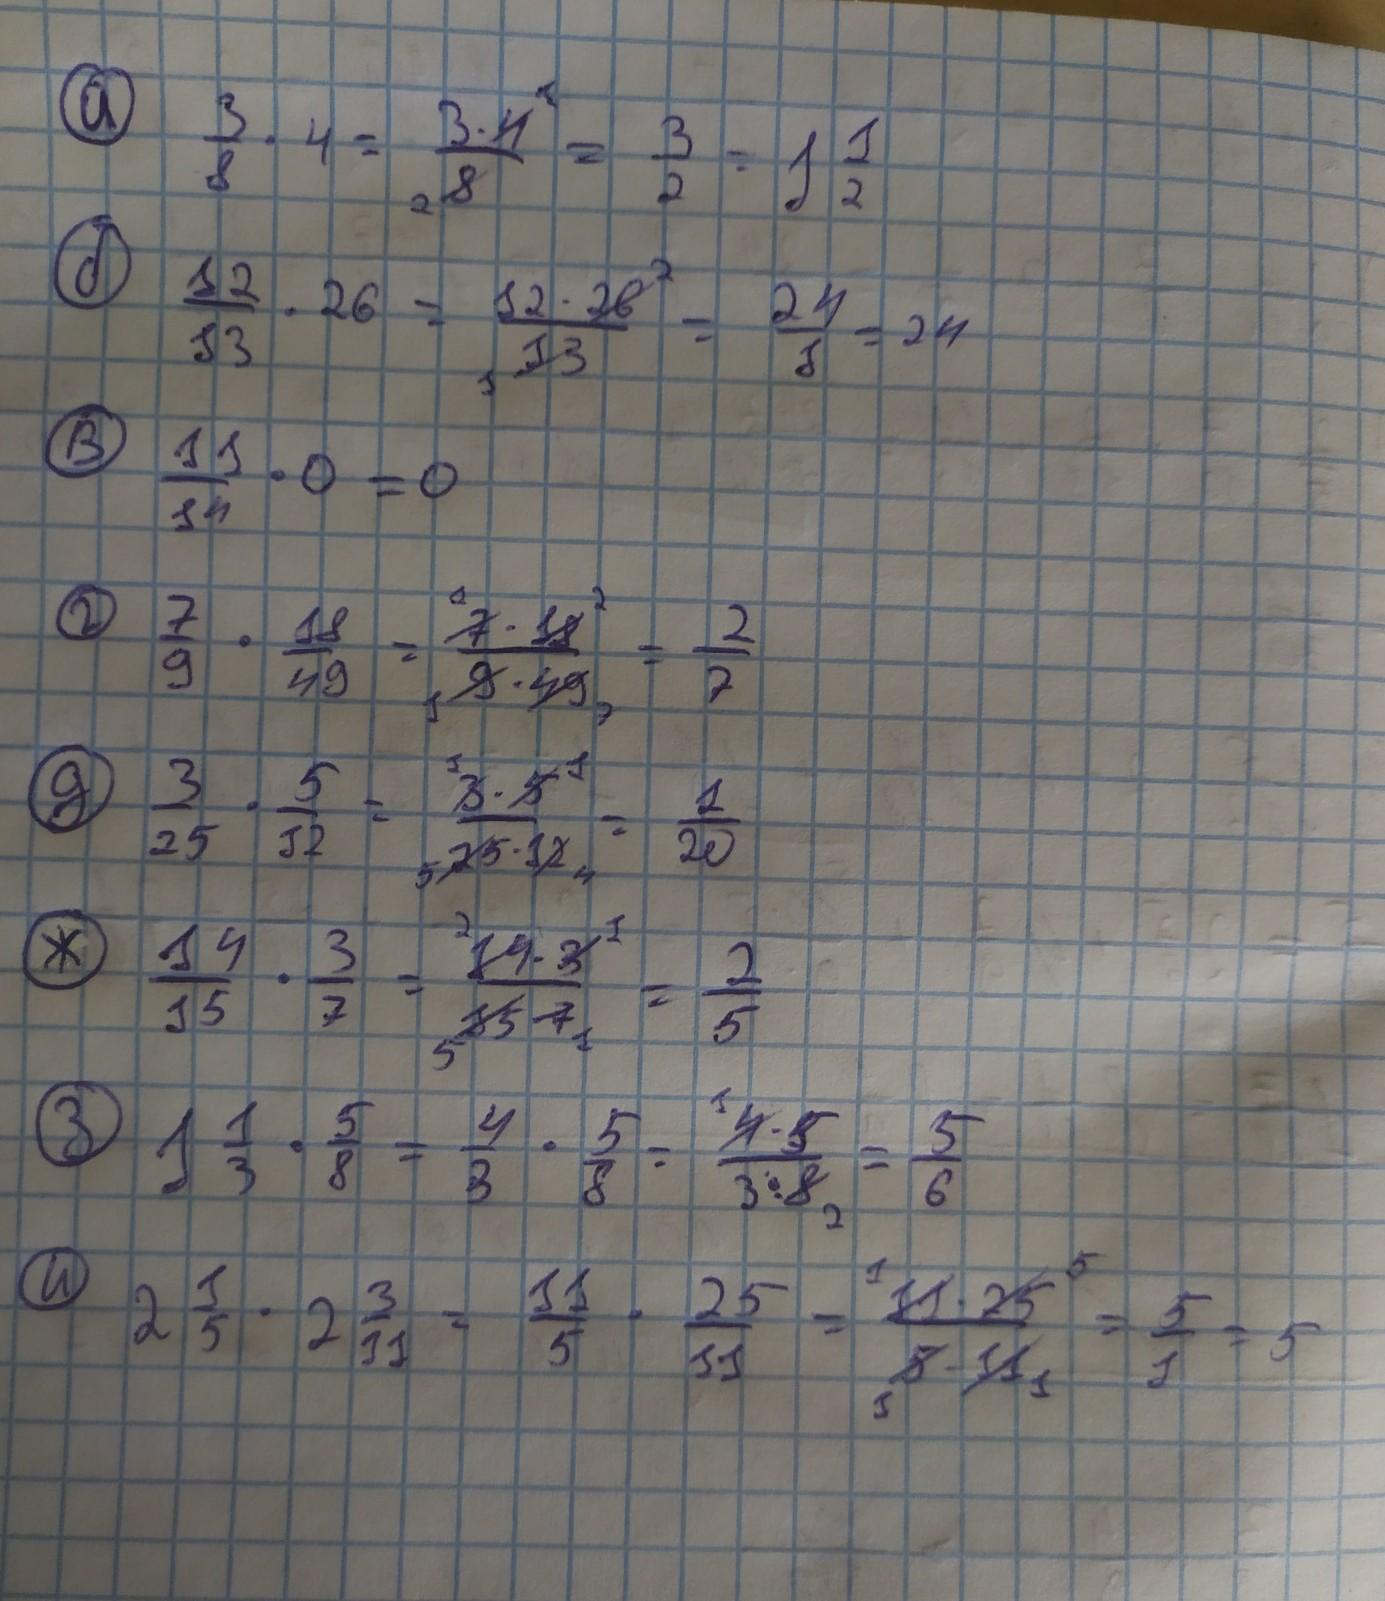 а) 3/8 · 4 = 3·4/8 = 3/2 = 1 1/2
б) 12/13 · 26 = 12·26/13 = 24/1 = 24
в) 11/14 · 0 = 0
г) 7/9 · 18/49 = 7·18/9·49 = 2/7
д) 3/25 · 5/12 = 3·5/25·12 = 1/20
ж) 14/15 · 3/7 = 14·3/15·7 = 2/5
з) 1 1/3 · 5/8 = 4/3 · 5/8 = 4·5/3·8 = 5/6
и) 2 1/5 · 2 3/11 = 11/5 · 25/11 = 11·25/5·11 = 5/1 = 5